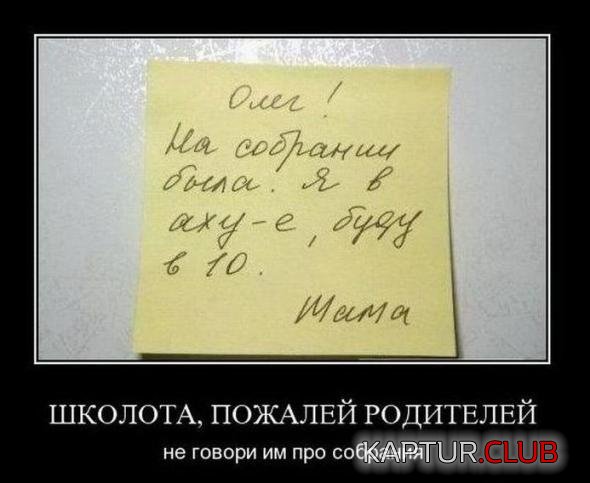 Олег!
На собрании
была. Я в
аху-е, буду
в 10.
Мама
ШКОЛОТА, ПОЖАЛЕЙ РОДИТЕЛЕЙ
не говори им про собрания
KAPTUR.CLUB